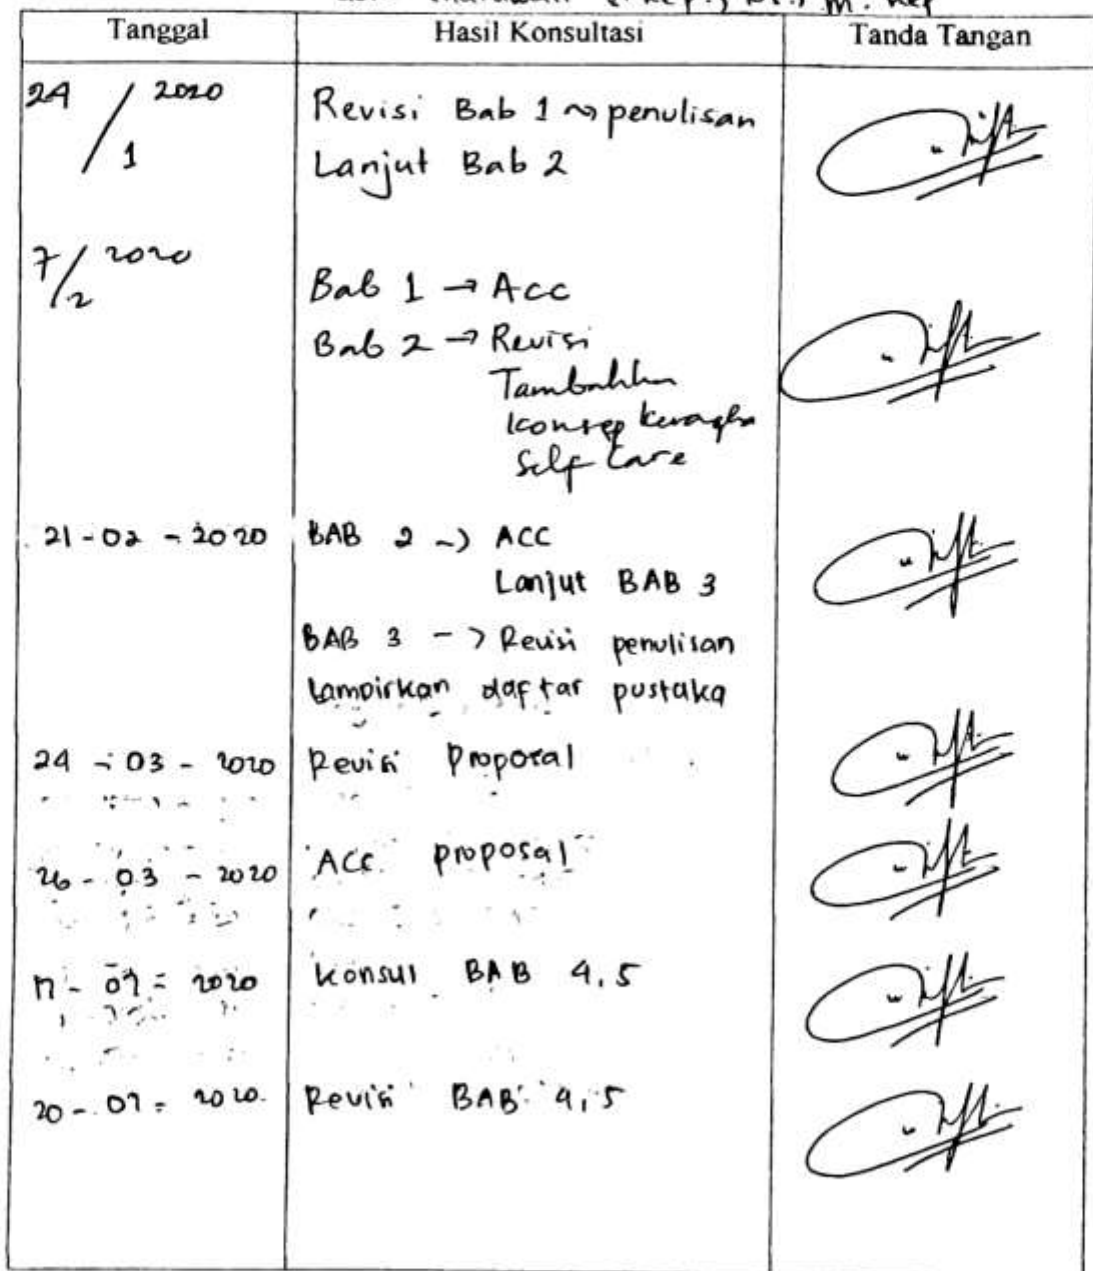 S.Kep., Ns., M. Kep
Tanggal Hasil Konsultasi Tanda Tangan
24/1 2020 Revisi Bab 1 ~> penulisan
Lanjut Bab 2
7/2 2020
Bab 1 → Acc
Bab 2 → Revisi
Tambahkan
konsep kerangka
Self Care
21-02-2020 BAB 2 -> ACC
Lanjut BAB 3
BAB 3 -> Revisi penulisan
Lampirkan daftar pustaka
24-03-2020 Revisi Proposal
26-03-2020 Acc proposal
17-07-2020 Konsul BAB 4,5
20-07-2020 Revisi BAB 4,5